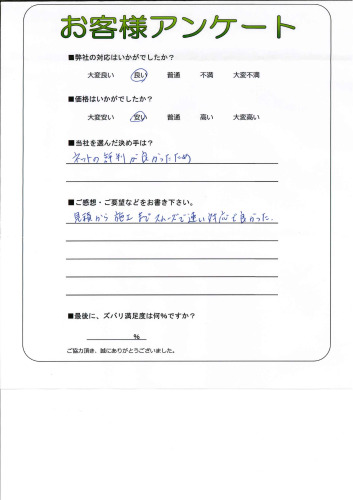 お客様アンケート
■弊社の対応はいかがでしたか？
大変良い 良い 普通 不満 大変不満
■価格はいかがでしたか？
大変安い 安い 普通 高い 大変高い
■当社を選んだ決め手は？
ネットの評判が良かったため
■ご感想・ご要望などをお書き下さい。
見積から施工までスムーズで速い対応も良かった.
■最後に、ズバリ満足度は何％ですか？
％
ご協力頂き、誠にありがとうございました。